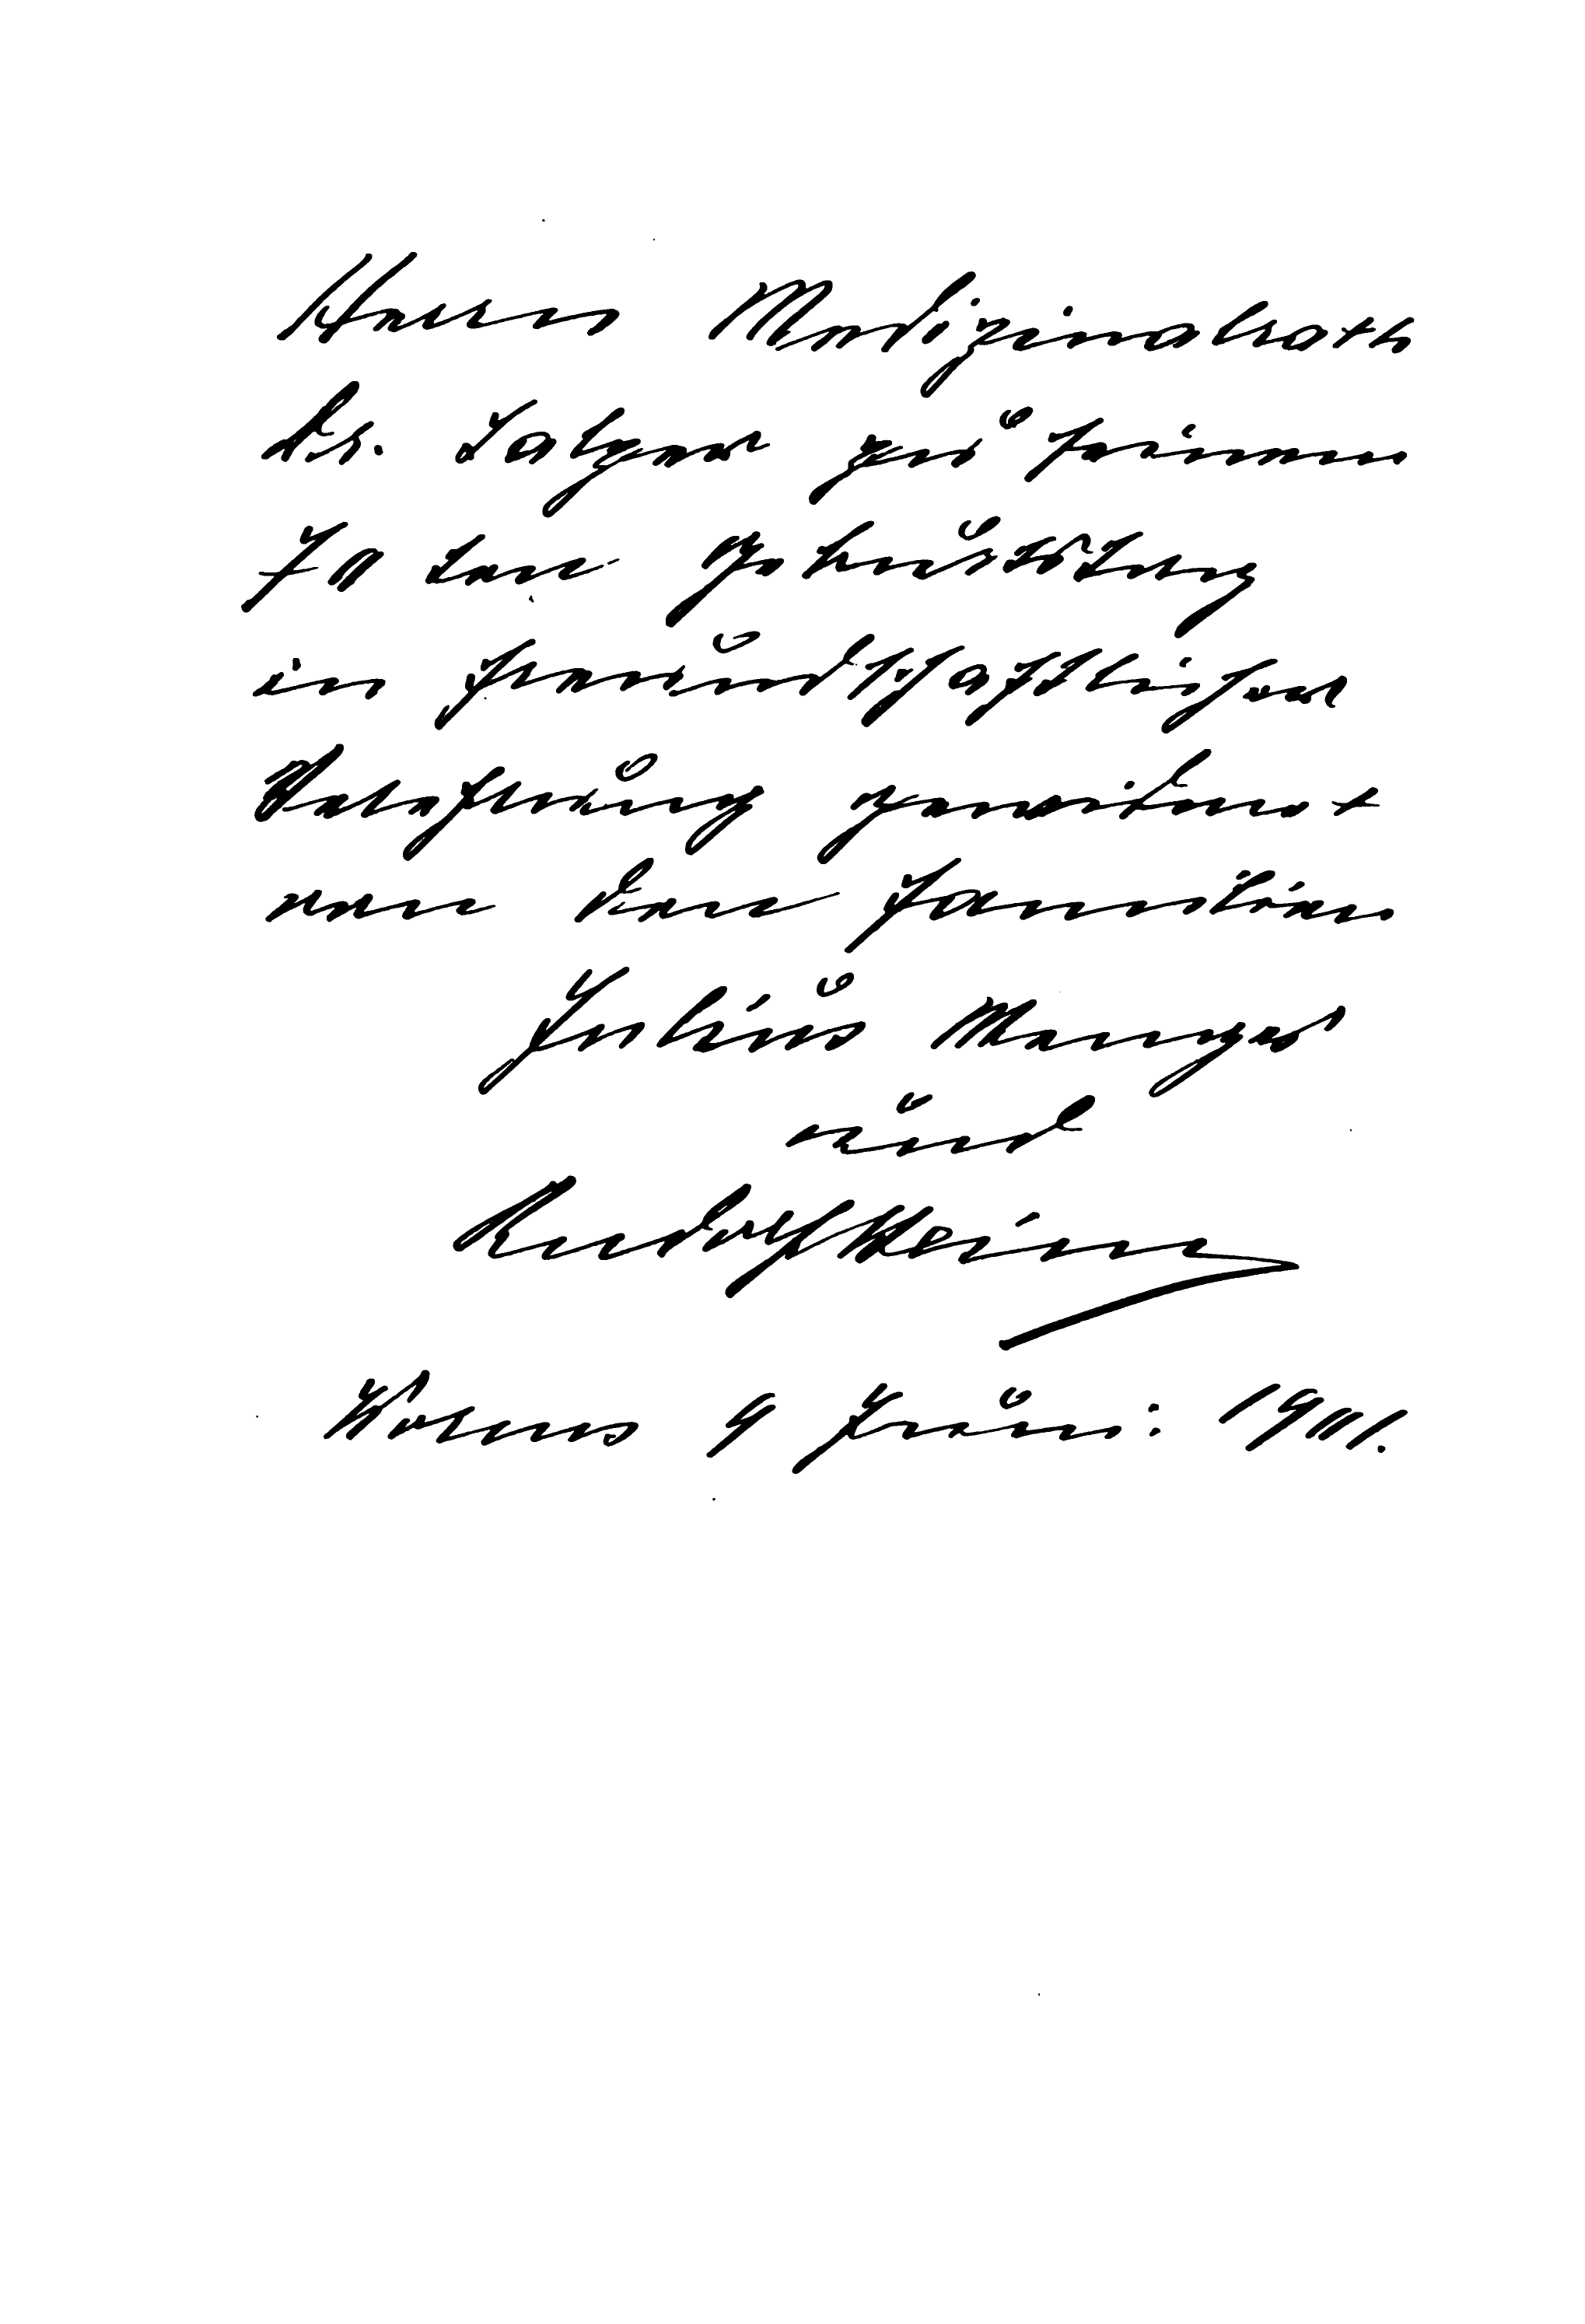 Herrn Medizinalrath
Dr. Salzer zu seinem
70 ten Geburtstag
in freundschaftlicher
Verehrung gewidmet
von den Familien
Julius Menges
und
Rudolf
Worms 9 Juni 1911.